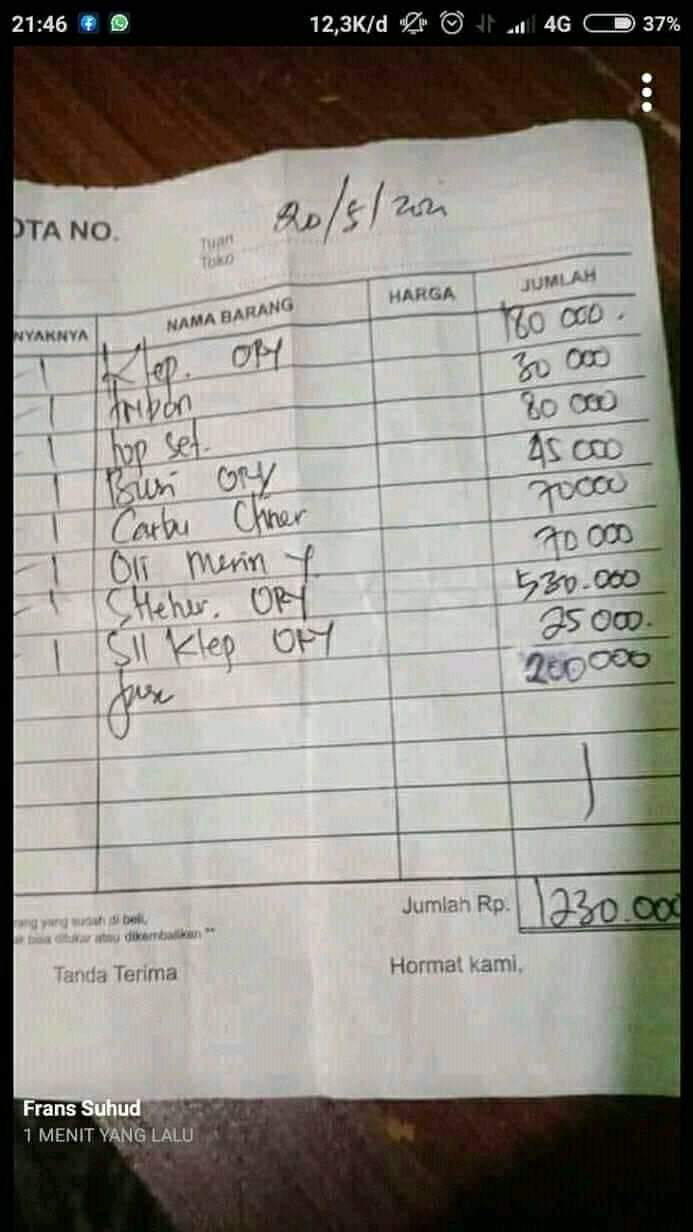 21:46 12,3K/d 4G 37%
OTA NO.
20/5/2021
Tuan
Toko
NYAKNYA NAMA BARANG HARGA JUMLAH
1 Klep. ORY 180 000.
1 tribon 30 000
1 top set. 80 000
1 Busi ORY 45 000
1 Carbu Cliner 70000
1 Oli Merin 70 000
1 SHeher. ORY 530.000
1 Sil Klep ORY 25 000.
Jasa 200 000
Jumlah Rp. 1230.000
rang yang sudah di beli,
ak bisa ditukar atau dikembalikan **
Tanda Terima Hormat kami,
Frans Suhud
1 MENIT YANG LALU